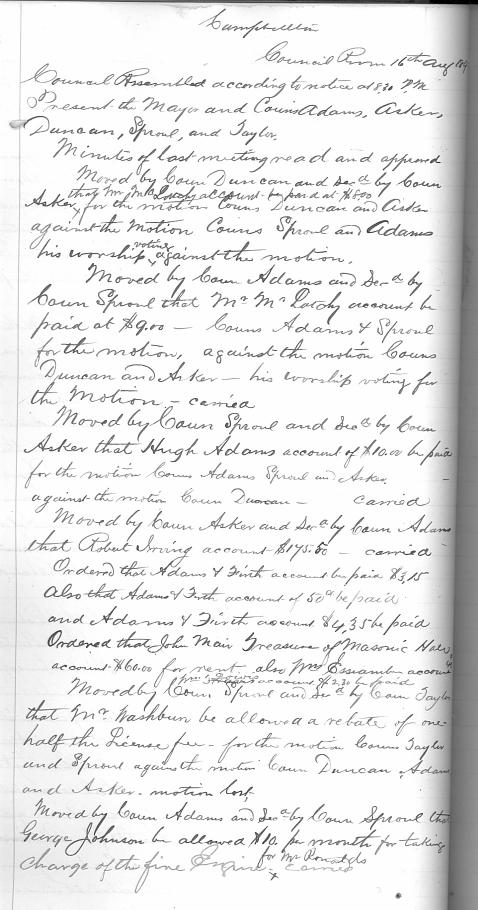 Campbellton
Council Room 16th Aug 189
Council Assembled according to notice at 8.30 PM
Present the Mayor and Couns Adams, Asker,
Duncan, Sproul, and Taylor.
Minutes of last meeting read and approved
Moved by Coun Duncan and Secd by Coun
that Mr Mc account be paid at $8.00
Asker, for the motion Couns Duncan and Asker
against the Motion Couns Sproul and Adams
his worship voting against the motion.
Moved by Coun Adams and Secd by
Coun Sproul that Mr Mc Patchy account be
paid at $9.00 — Couns Adams & Sproul
for the motion, against the motion Couns
Duncan and Asker — his worship voting for
the Motion — carried
Moved by Coun Sproul and Secd by Coun
Asker that Hugh Adams account of $10.00 be paid
for the motion Couns Adams Sproul and Asker. —
against the motion Coun Duncan — carried
Moved by Coun Asker and Secd by Coun Adams
that Robert Irving account $175.50 — carried
Ordered that Adams & Firth account be paid $3.15
Also that Adams & Firth account of 50c be paid
and Adams & Firth account $4.35 be paid
Ordered that John Mair Treasure of Masonic Hall
account $60.00 for rent, also Wm account
account $2.30 be paid
Moved by Coun Sproul and Secd by Coun Taylor
that Mr Washburn be allowed a rebate of one
half the License fee - for the motion Couns Taylor
and Sproul against the motion Coun Duncan, Adams
and Asker - motion lost.
Moved by Coun Adams and Secd by Coun Sproul that
George Johnson be allowed $10. per month for taking
for Mr Ronalds
Charge of the fire Engine x carried